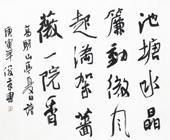 池塘水晶
簾動微風
起滿架薔
薇一院香
高駢山亭夏日詩
庚寅年